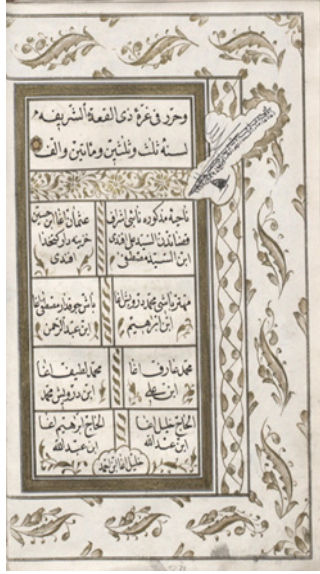 وحرر فى غرة ذى القعدة الشريفه
لسنة ثلث وثلثين ومائتين والف
ناحية مذكوره نائبى اشراف
قضاتدن السيد على افندى
ابن السيد مصطفى
عثمان اغا ابن حسين
خزينه دار كتخدا
افندى
مهتر باشى محمد درويش اغا
ابن ابراهيم
باش چوقدار مصطفى اغا
ابن عبد الرحمن
محمد عارف اغا
ابن على
محمد لطيف اغا
ابن درويش محمد
الحاج خليل اغا
ابن عبد الله
الحاج ابرهيم اغا
ابن عبد الله
خليل اغا ابن احمد